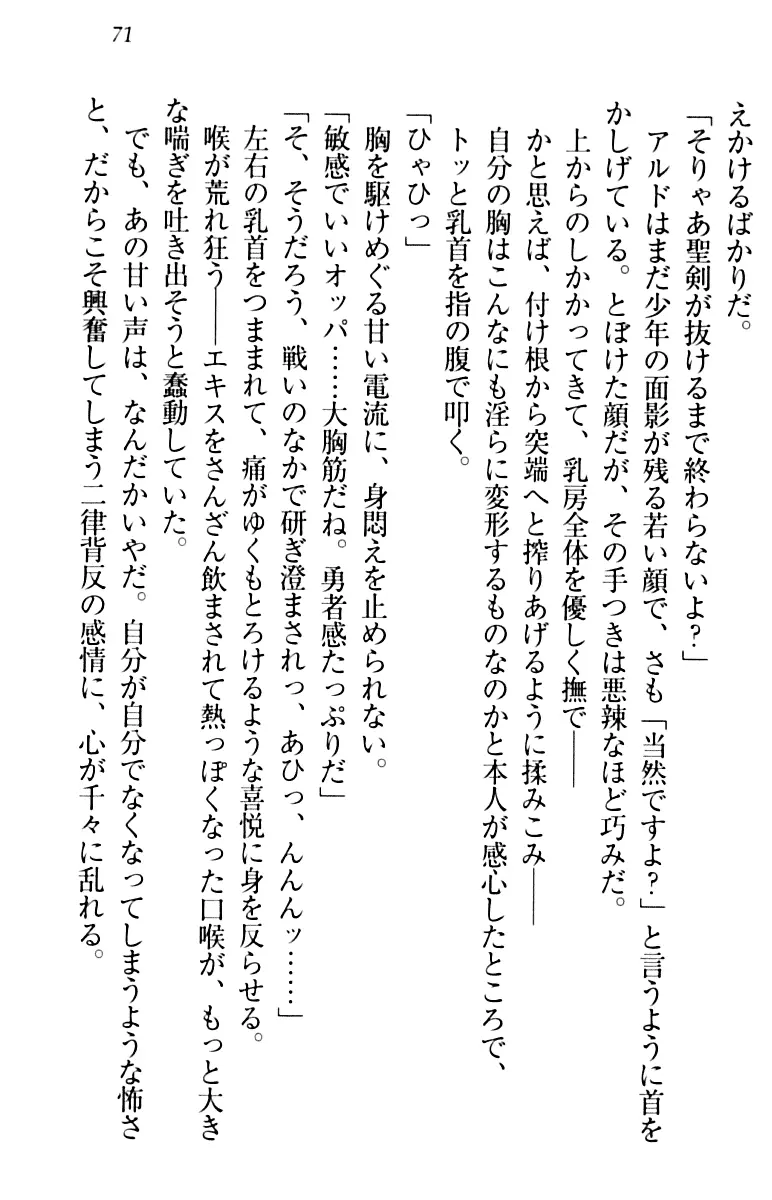 71
えかけるばかりだ。
「そりゃあ聖剣が抜けるまで終わらないよ？」
アルドはまだ少年の面影が残る若い顔で、さも「当然ですよ？」と言うように首を
かしげている。とぼけた顔だが、その手つきは悪辣なほど巧みだ。
上からのしかかってきて、乳房全体を優しく撫で――
かと思えば、付け根から突端へと搾りあげるように揉みこみ――
自分の胸はこんなにも淫らに変形するものなのかと本人が感心したところで、
トッと乳首を指の腹で叩く。
「ひゃひっ」
胸を駆けめぐる甘い電流に、身悶えを止められない。
「敏感でいいオッパ……大胸筋だね。勇者感たっぷりだ」
「そ、そうだろう、戦いのなかで研ぎ澄まされっ、あひっ、んんんッ……」
左右の乳首をつままれて、痛がゆくもとろけるような喜悦に身を反らせる。
喉が荒れ狂う――エキスをさんざん飲まされて熱っぽくなった口喉が、もっと大き
な喘ぎを吐き出そうと蠢動していた。
でも、あの甘い声は、なんだかいやだ。自分が自分でなくなってしまうような怖さ
と、だからこそ興奮してしまう二律背反の感情に、心が千々に乱れる。